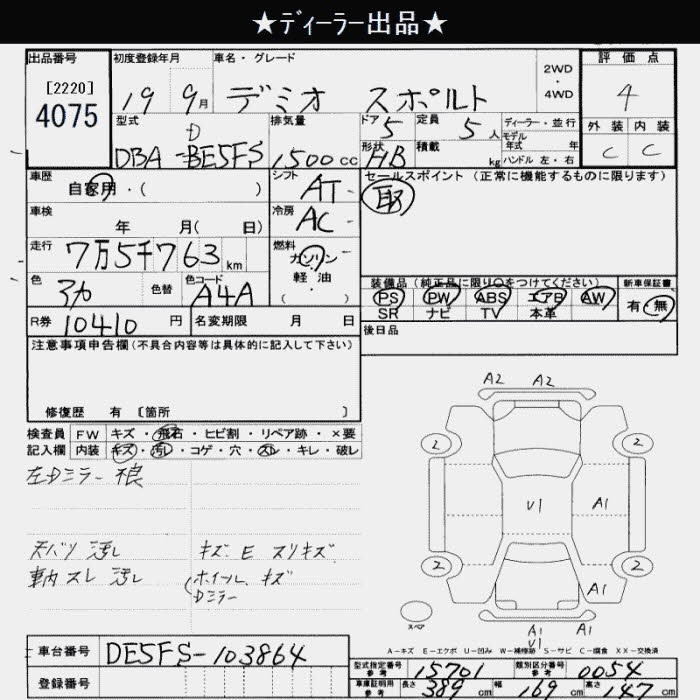 ★ディーラー出品★
出品番号 初度登録年月 車名・グレード 2WD ・ 4WD 評価点
[2220]
4075
19 9月 デミオ スポルト 4
型式 排気量 ドア 定員 ディーラー・並行 外装 内装
D 5 5人 モデル年式 年 C C
DBA-BE5FS 1500cc 形状 HB 積載 kg ハンドル 左・右
車歴 自家用・( ) シフト AT セールスポイント (正常に機能するものに限ります)
車検 年 月( 日) 冷房 AC 取
走行 7万5千763km 燃料 ガソリン・軽油・( )
色 色替 色コード A4A 装備品(純正品に限り○をつけてください) 新車保証書
PS PW ABS エアB AW 有・無
SR ナビ TV 本革
R券 10410円 名変期限 月 日 後日品
注意事項申告欄(不具合内容等は具体的に記入して下さい)
修復歴 有 [箇所 ]
検査員 FW キズ・飛石・ヒビ割・リペア跡・×要
記入欄 内装 キズ・汚レ・コゲ・穴・スレ・キレ・破レ
左Dミラー 不良
天バリ 汚レ キズ E スリキズ
車内 スレ 汚レ ホイール キズ
Dミラー
A2 A2
2 2
U1 A1
2 2
A1
スペア A1
U1 A1
A-キズ E-エクボ U-凹み W-補修跡 S-サビ C-腐食 XX-交換済
車台番号 DE5FS-103864
登録番号
型式指定番号 参考 15701 類別区分番号 参考 0054
車庫証明用 参考 長さ 389cm 幅 169cm 高さ 147cm